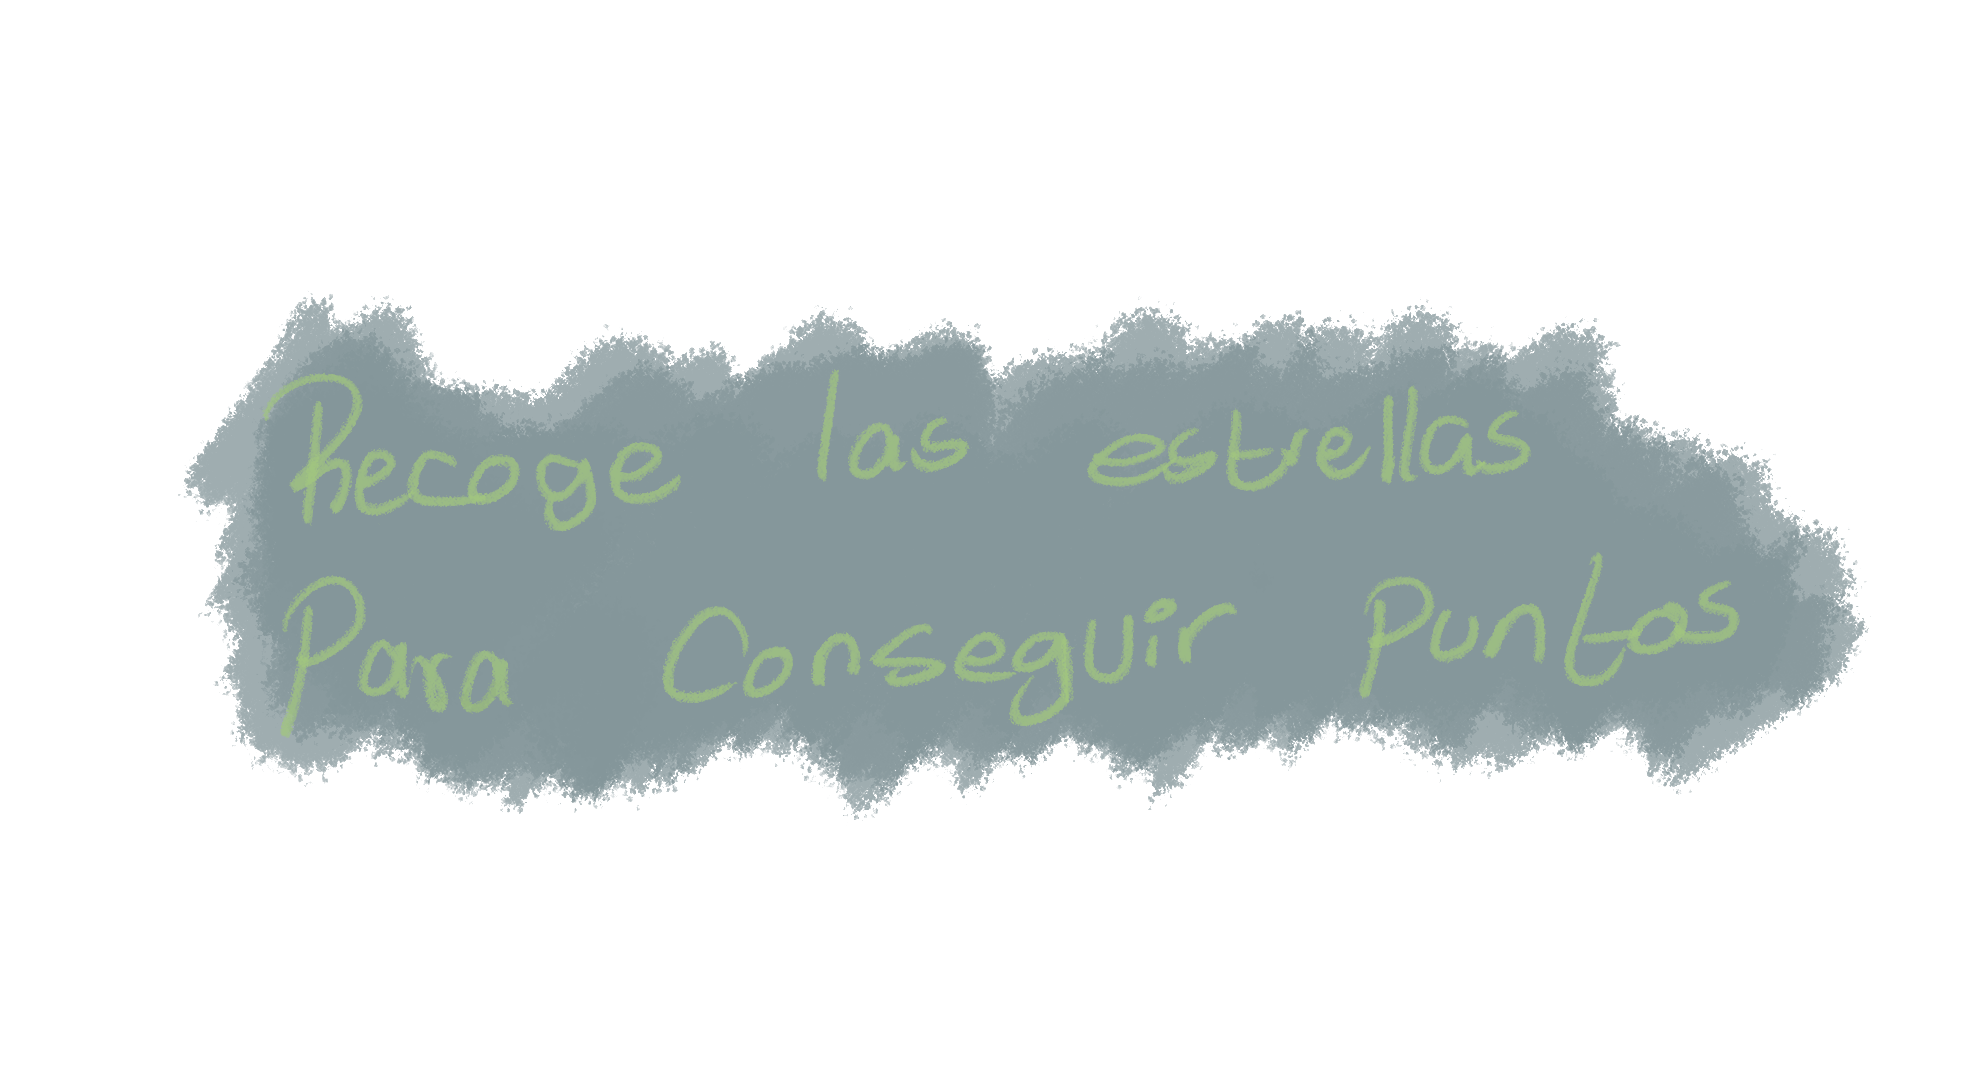 Recoge las estrellas
Para Conseguir Puntos